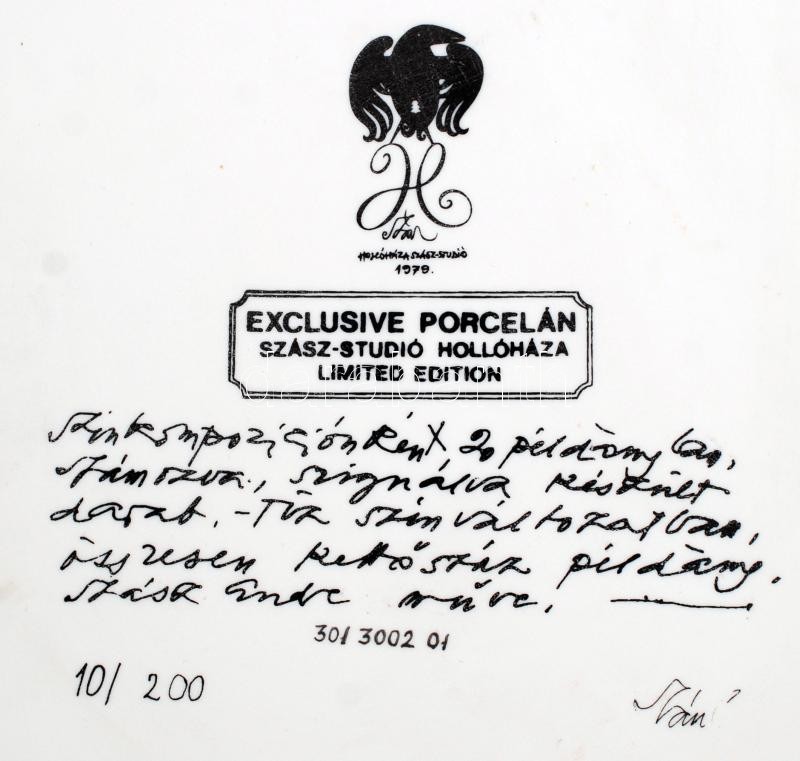 Szász
HOLLÓHÁZA SZÁSZ-STUDIÓ
1979.
EXCLUSIVE PORCELÁN
SZÁSZ-STUDIÓ HOLLÓHÁZA
LIMITED EDITION
Színkompoziciónként 20 példányban,
számozva, szignálva készült
darab. - Tíz színváltozatban,
összesen kettőszáz példány.
Szász Endre műve.
301 3002 01
10/ 200
Szász